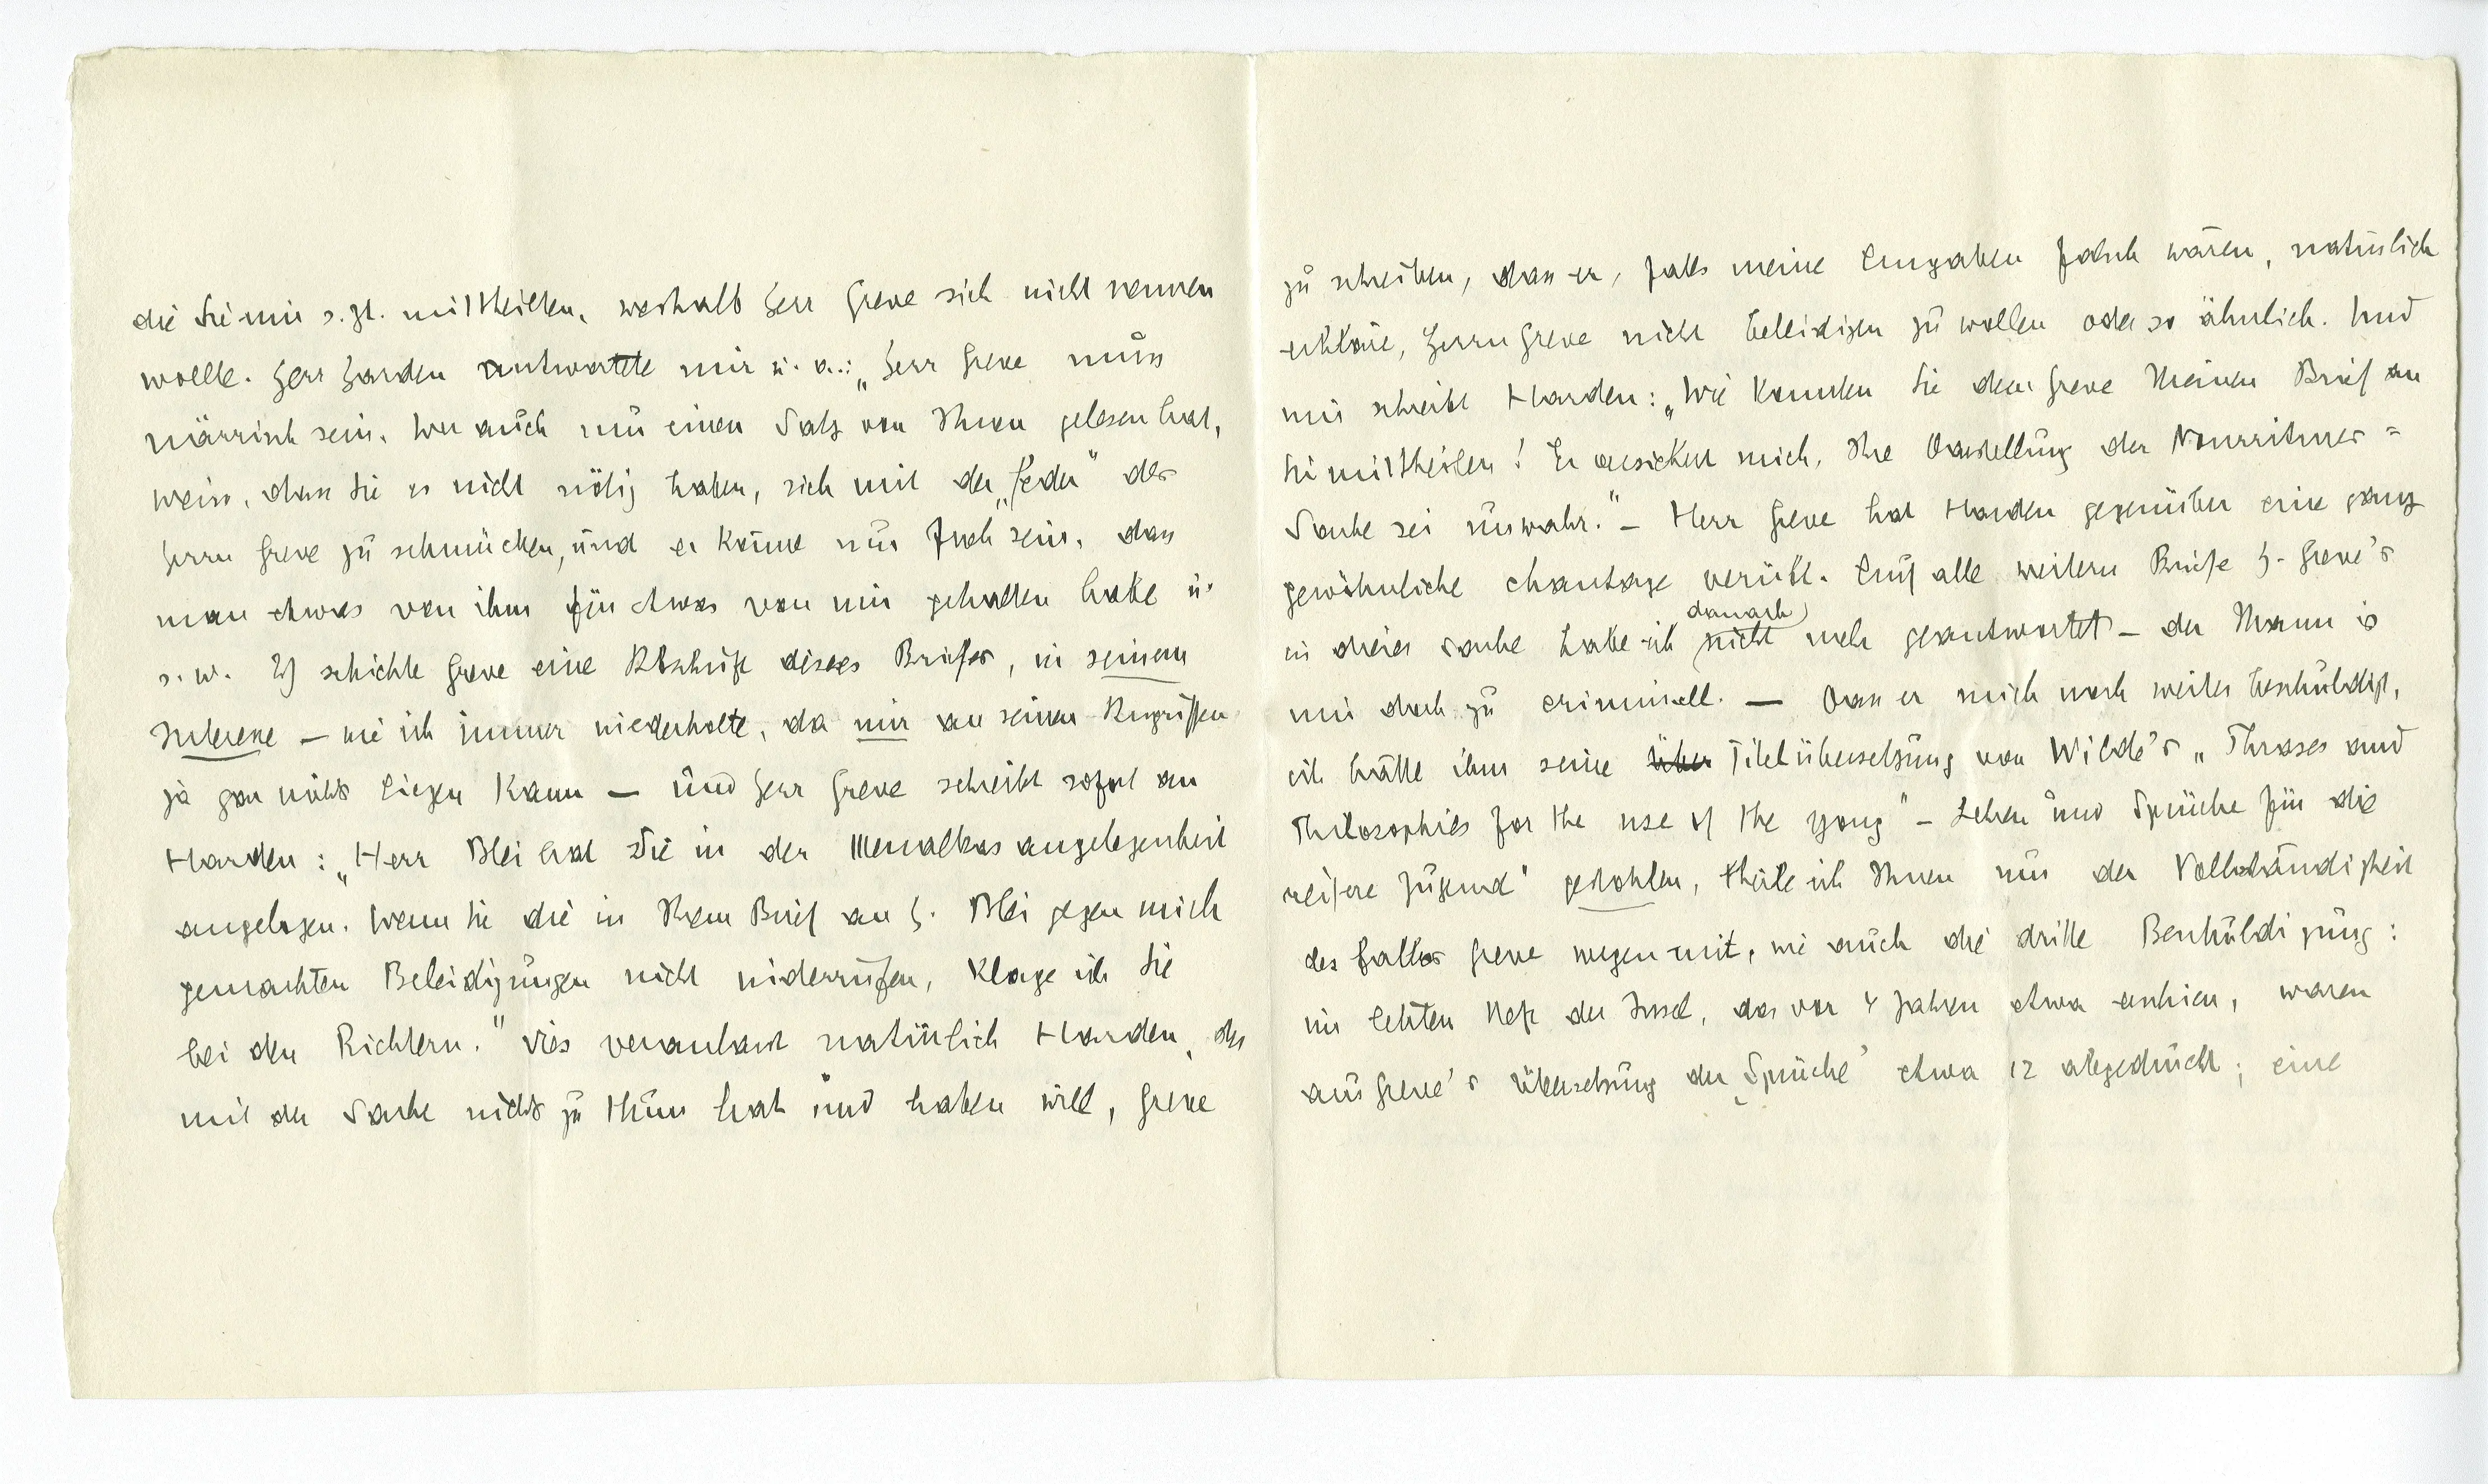 die Sie mir s. Zt. mittheilten, weshalb Herr Greve sich nicht nennen
wolle. Herr Harden antwortete mir u. a.: „Herr Greve muss
närrisch sein. Wer auch nur einen Satz von Ihnen gelesen hat,
weiss, dass Sie es nicht nötig haben, sich mit der „Feder“ des
Herrn Greve zu schmücken, und er könne nur froh sein, dass
man etwas von ihm für etwas von mir gehalten habe u.
s. w. Ich schickte Greve eine Abschrift dieses Briefes, in seinem
Interesse – wie ich immer wiederholte, da mir an seinen Angriffen
ja gar nichts liegen kann – und Herr Greve schreibt sofort an
Harden: „Herr Blei hat Sie in der Menalkas angelegenheit
angelogen. Wenn Sie die in Ihrem Brief an H. Blei gegen mich
gemachten Beleidigungen nicht widerrufen, klage ich Sie
bei den Richtern.“ Dies veranlasst natürlich Harden, der
mit der Sache nichts zu thun hat und haben will, Greve
zu schreiben, dass er, falls meine Angaben falsch wären, natürlich
erkläre, Herrn Greve nicht beleidigen zu wollen oder so ähnlich. Und
mir schreibt Harden: „Wie konnten Sie dem Greve Meinen Brief an
Sie mittheilen! Er versichert mich, Ihre Darstellung der Nourritures =
Sache sei unwahr.“ – Herr Greve hat Harden gegenüber eine ganz
gewöhnliche chantage verübt. Auf alle weitern Briefe H. Greve's
in dieser Sache habe ich danach nicht mehr geantwortet – der Mann is
mir doch zu criminell. – Dass er mich noch weiter beschuldigt,
ich hätte ihm seine Über Titelübersetzung von Wilde's „Phrases and
Philosophies for the use of the yong“ – Lehren und Sprüche für die
reifere Jugend“ gestohlen, theile ich Ihnen nur der Vollständigkeit
des Falles Greve wegen mit, wie auch die dritte Beschuldigung:
im letzten Heft der Insel, das vor 4 Jahren etwa erschien, waren
aus Greve's Übersetzung der „Sprüche“ etwa 12 abgedruckt; eine